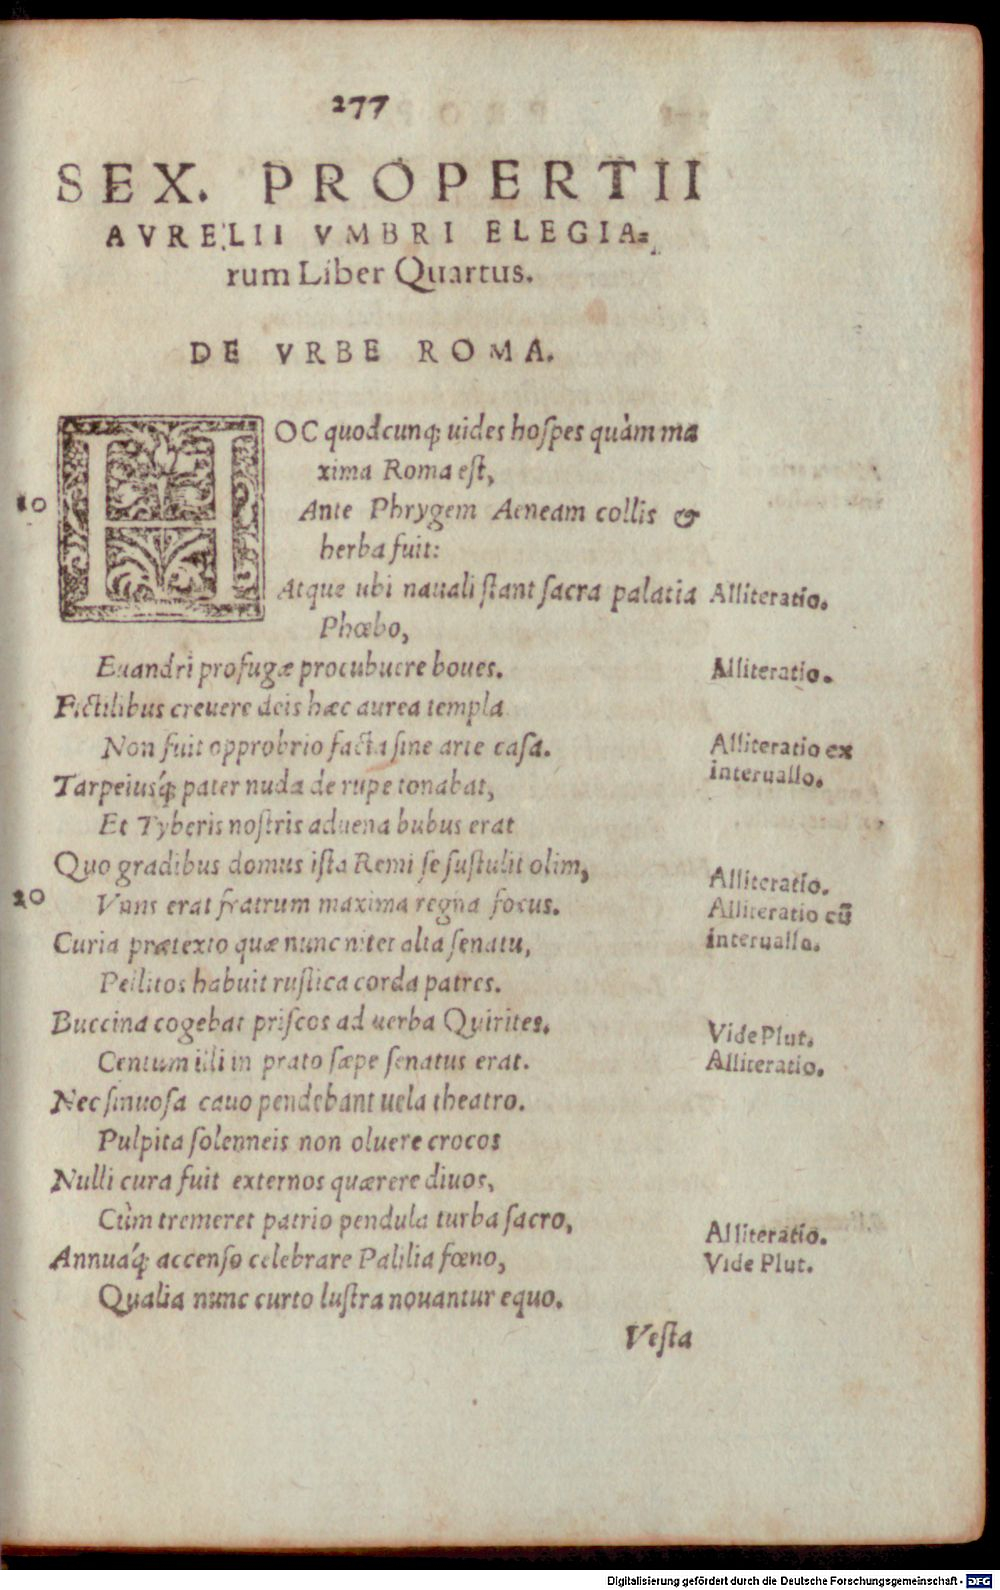 277
SEX. PROPERTII
AVRELII VMBRI ELEGIA=
rum Liber Quartus.
DE VRBE ROMA.
HOC quodcunq; uides hospes quàm ma
xima Roma est,
10
Ante Phrygem Aeneam collis &
herba fuit:
Atque ubi nauali stant sacra palatia Alliteratio.
Phœbo,
Euandri profugæ procubuere boues. Alliteratio.
Fictilibus creuere deis hæc aurea templa
Non fuit opprobrio facta sine arte casa. Alliteratio ex
interuallo.
Tarpeiusq́; pater nuda de rupe tonabat,
Et Tyberis nostris aduena bubus erat
Quo gradibus domus ista Remi se sustulit olim,
Alliteratio.
20 Vnus erat fratrum maxima regna focus. Alliteratio cũ
Curia prætexto quæ nunc nitet alta senatu, interuallo.
Pellitos habuit rustica corda patres.
Buccina cogebat priscos ad uerba Quirites. Vide Plut.
Centum illi in prato sæpe senatus erat. Alliteratio.
Nec sinuosa cauo pendebant uela theatro.
Pulpita solenneis non oluere crocos
Nulli cura fuit externos quærere diuos,
Cùm tremeret patrio pendula turba sacro, Alliteratio.
Annuaq́; accenso celebrare Palilia fœno, Vide Plut.
Qualia nunc curto lustra nouantur equo.
Vesta
Digitalisierung gefördert durch die Deutsche Forschungsgemeinschaft - DFG